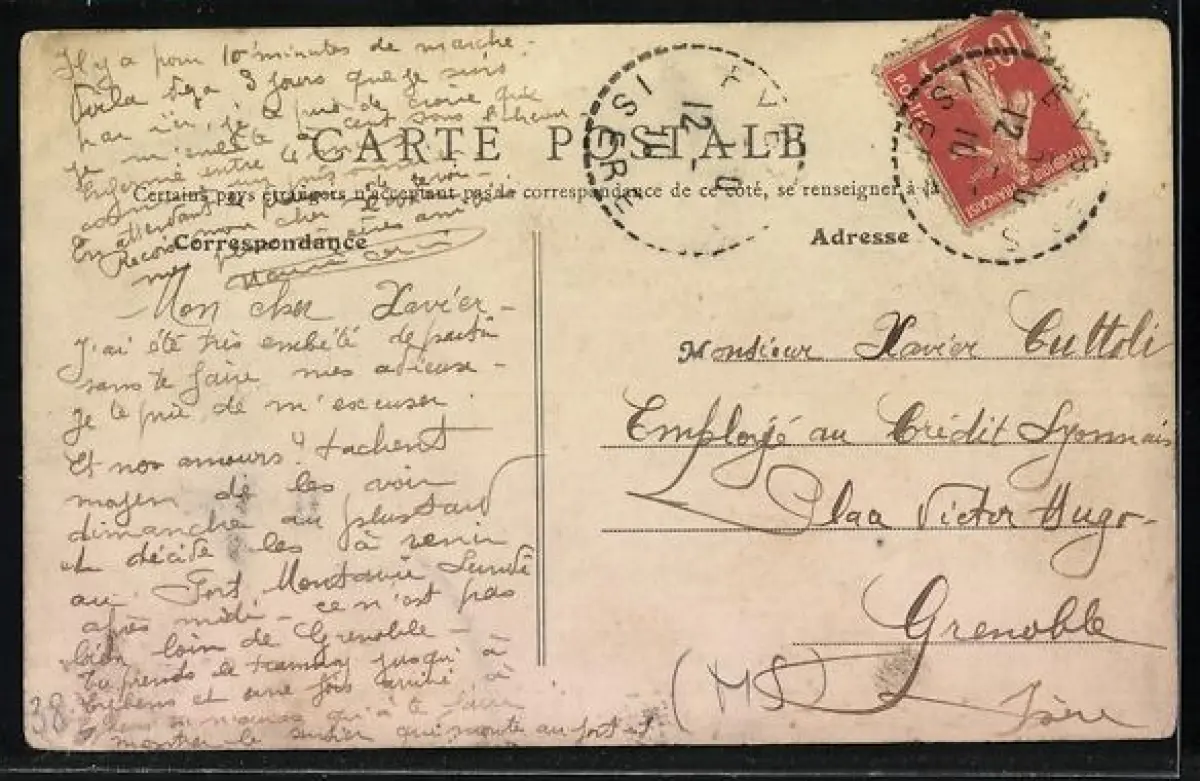 CARTE POSTALE
Certains pays étrangers n'acceptant pas la correspondance de ce côté, se renseigner à la
Correspondance
Adresse
Mon cher Xavier -
J'ai été très embêté de partir
sans te faire mes adieux -
Je te prie de m'excuser.
Et nos amours? tachent
moyen de les voir
dimanche au plus tard
et décide les à venir
au Fort Montavie Lundi
après midi - ce n'est pas
bien loin de Grenoble -
Tu prends le tramway jusqu'à
Eybens et une fois arrivé à
Eybens qu'à te faire
montrer le sentier qui monte au fort et
Il y a pour 10 minutes de marche -
Voila déja 3 jours que je suis
par ici, je te prie de croire que
je m'embête à cent sous l'heure
Enfermé entre
comme
En attendant le plaisir de te voir -
Recois mon cher
mes amitiés
Monsieur Xavier Cuttoli
Employé au Crédit Lyonnais
Place Victor Hugo -
Grenoble
(MS)
Isère
38
ISERE
12
10
POSTES
10
ISERE
12
10